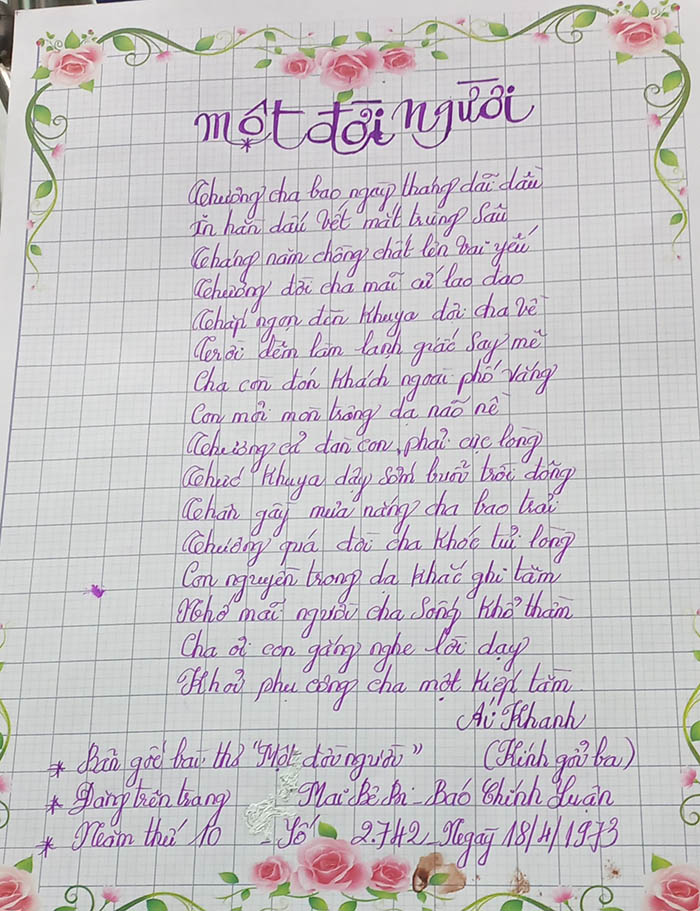 Một đời người
Thương cha bao ngày tháng dãi dầu
In hằn dấu vết mắt trũng sâu
Tháng năm chồng chất lên vai yếu
Thương đời cha mãi cứ lao đao
Thắp ngọn đèn khuya đợi cha về
Trời đêm lắm lạnh giấc say mê
Cha còn đón khách ngoài phố vắng
Con mỏi mòn trông dạ não nề
Thương cả đàn con, phải cực lòng
Thức khuya dậy sớm buổi trời đông
Thân gầy mưa nắng cha bao trải
Thương quá đời cha khóc tủi lòng
Con nguyện trong dạ khắc ghi tâm
Nhớ mãi người cha sống khổ thầm
Cha ơi con gắng nghe lời dạy
Khỏi phụ công cha một kiếp tằm
Ái Khanh
* Bản gốc bài thơ "Một đời người" (Kính gởi ba)
* Đăng trên trang Mai Bê Bi - Báo Chính Luận
* Năm thứ 10 - Số 2.742 - Ngày 18/4/1973